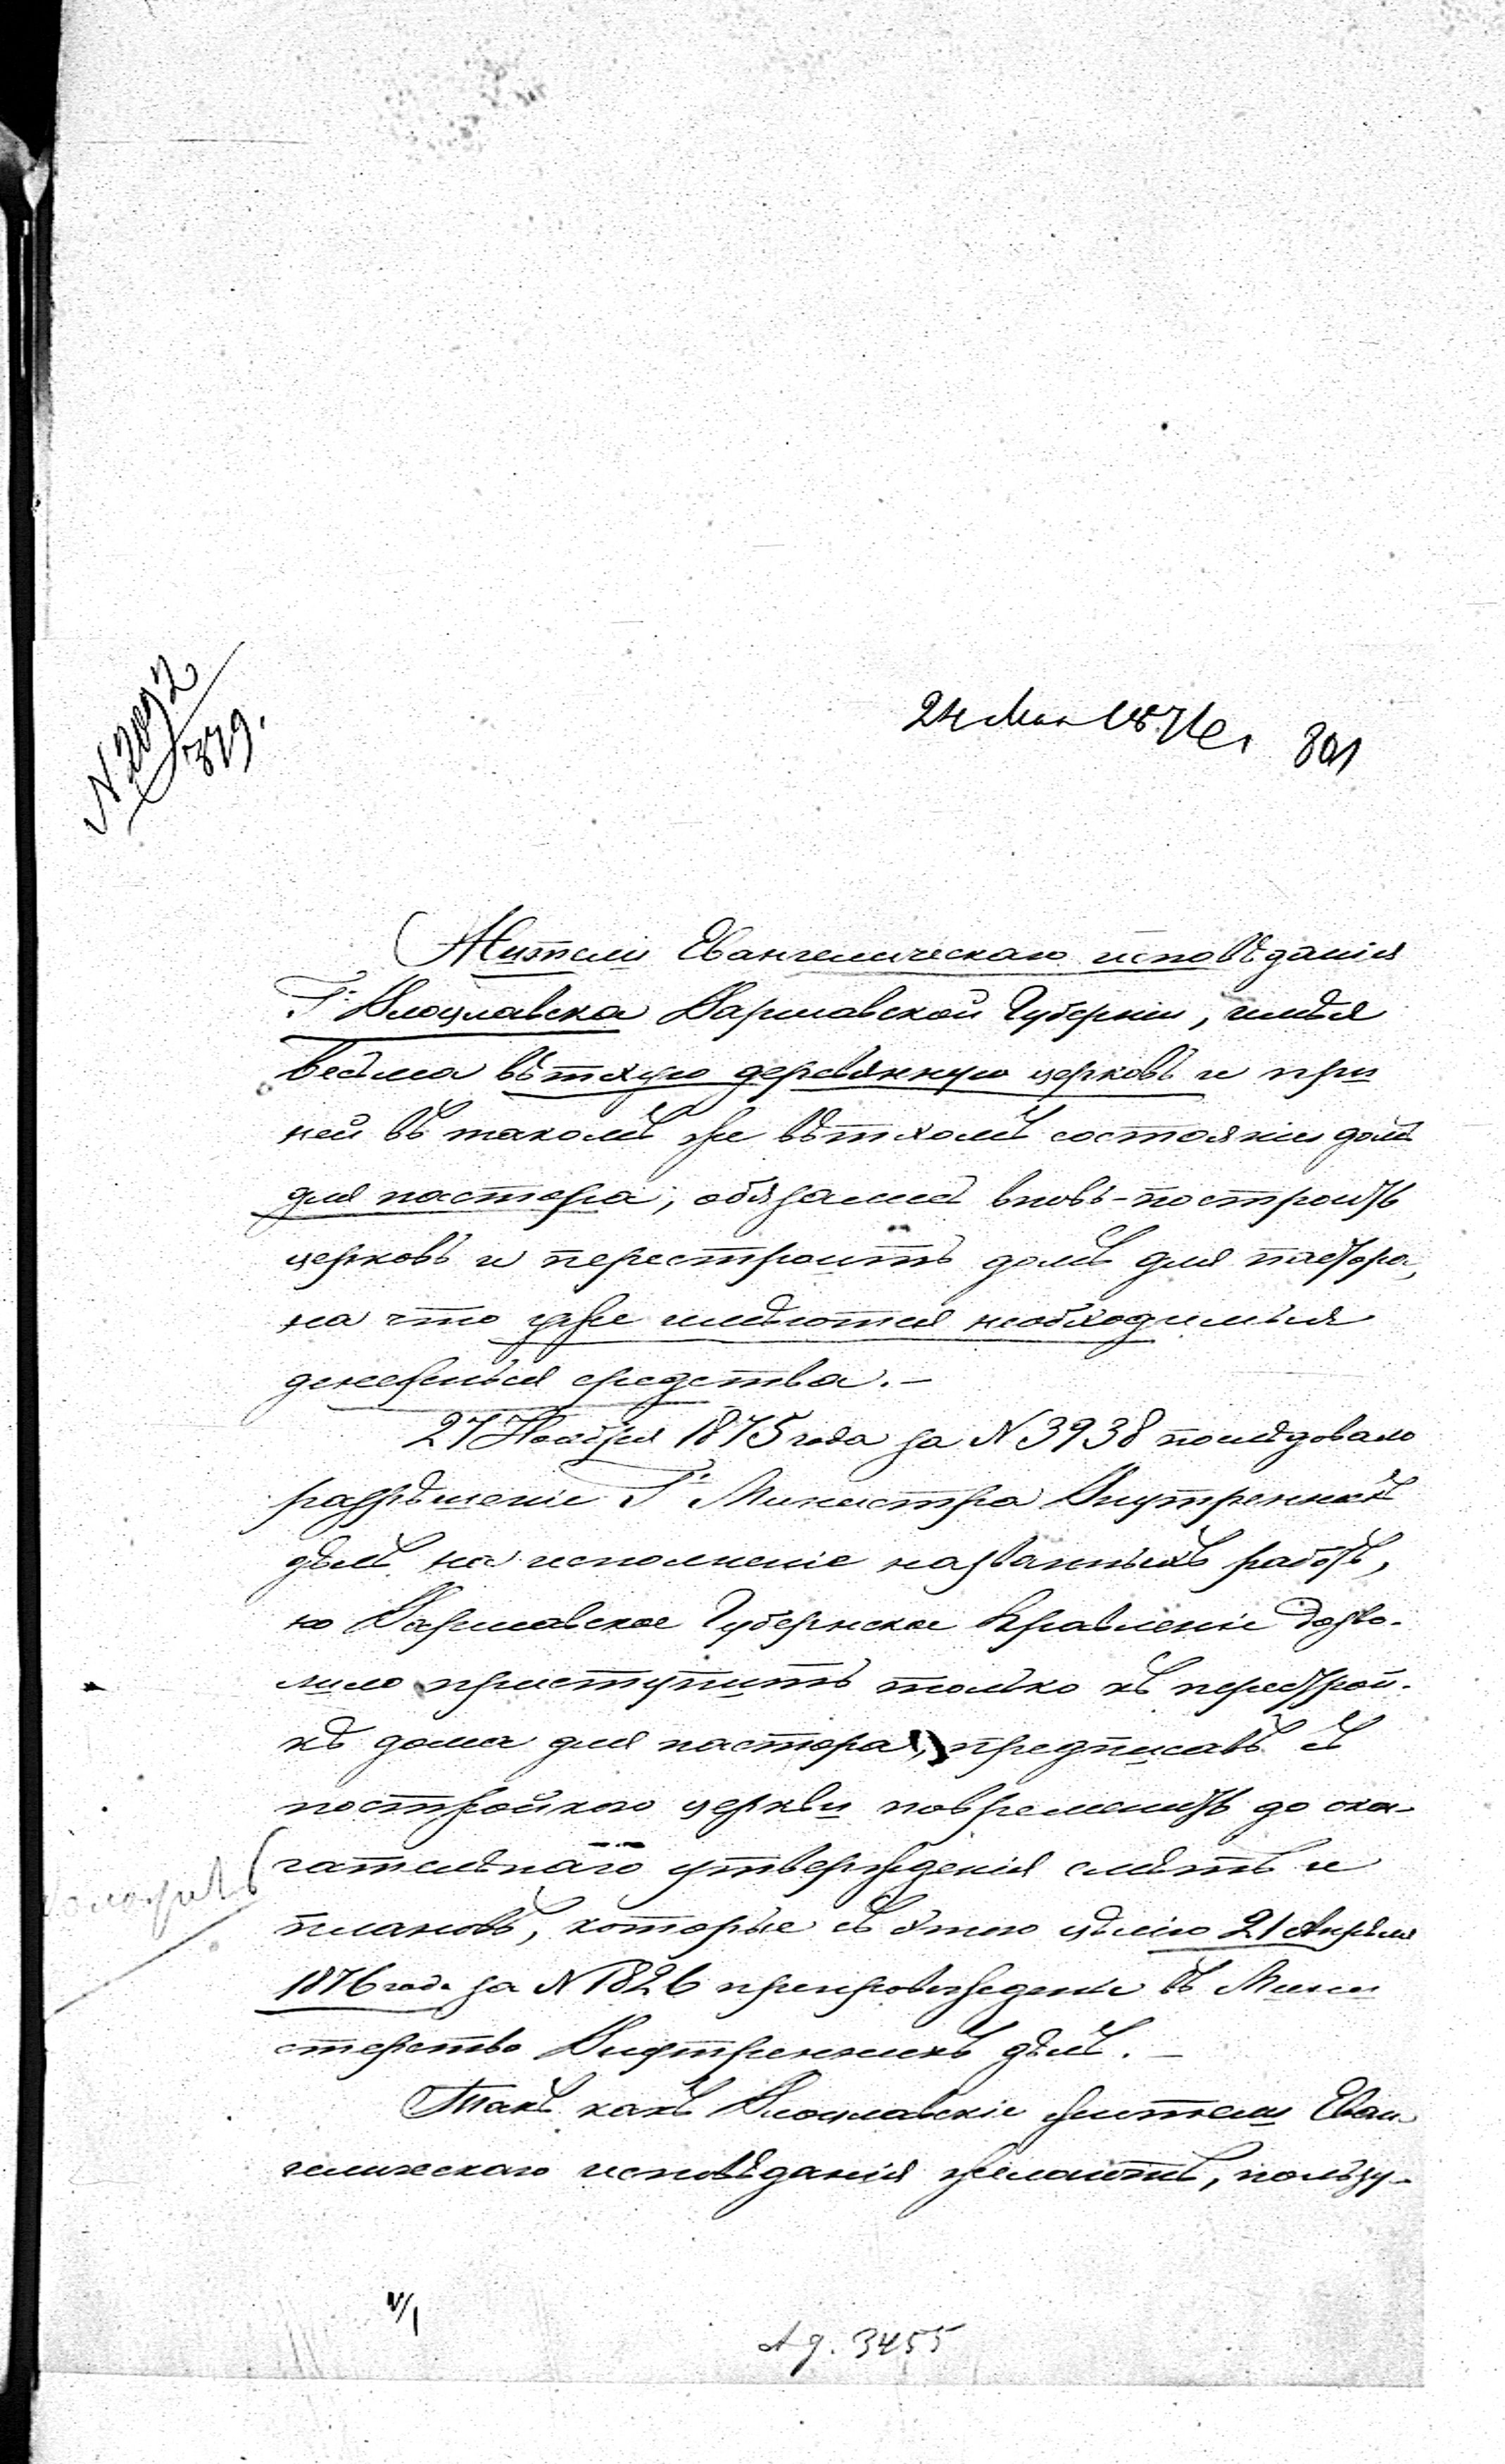 N 2092
379.
24 Мая 1876 г. 801
Жители Евангелическаго исповѣданія
Г. Влоцлавска Варшавской Губерніи, имѣя
весьма вѣтхую деревянную церковь и при
ней въ такомъ же вѣтхомъ состояніи домъ
для пастора, обязались вновь-построить
церковь и перестроить домъ для пастора,
на что уже имѣются необходимыя
денежныя средства.-
27 Ноября 1875 года за N 3938 послѣдовало
разрѣшеніе Г. Министра Внутреннихъ
дѣлъ на исполненіе названныхъ работъ,
но Варшавское Губернское Правленіе дозво-
лило приступить только къ перестрой-
кѣ дома для пастора, предписавъ съ
постройкою церкви повременить до окон-
чательнаго утвержденія смѣтъ и
плановъ, которые съ этою цѣлію 21 Апрѣля
1876 года за N 1826 препровождены въ Мини
стерство Внутреннихъ дѣлъ.-
Такъ какъ Влоцлавскіе жители Еван
гелическаго исповѣданія желаютъ, пользу-
V/1
Ад. 3455